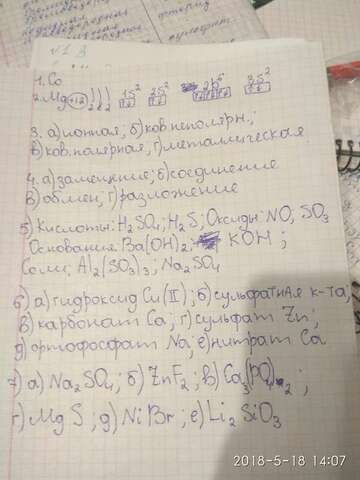 1. Co
2. Mg +12 ))) 2 8 2 1S² 2S² 2p⁶ 3S²
3. а) ионная; б) ков. неполярн.;
в) ков. полярная, г) металлическая
4. а) замещение; б) соединение
в) обмен; г) разложение
5) Кислоты: H₂SO₄; H₂S; Оксиды: NO; SO₃
Основания: Ba(OH)₂; KOH;
Соли; Al₂(SO₃)₃; Na₂SO₄
6) а) гидроксид Cu(II); б) сульфатная к-та,
в) карбонат Ca; г) сульфат Zn;
д) ортофосфат Na; е) нитрат Ca
7) а) Na₂SO₄; б) ZnF₂; в) Ca₃(PO₄)₂;
г) MgS; д) NiBr; е) Li₂SiO₃
2018-5-18 14:07